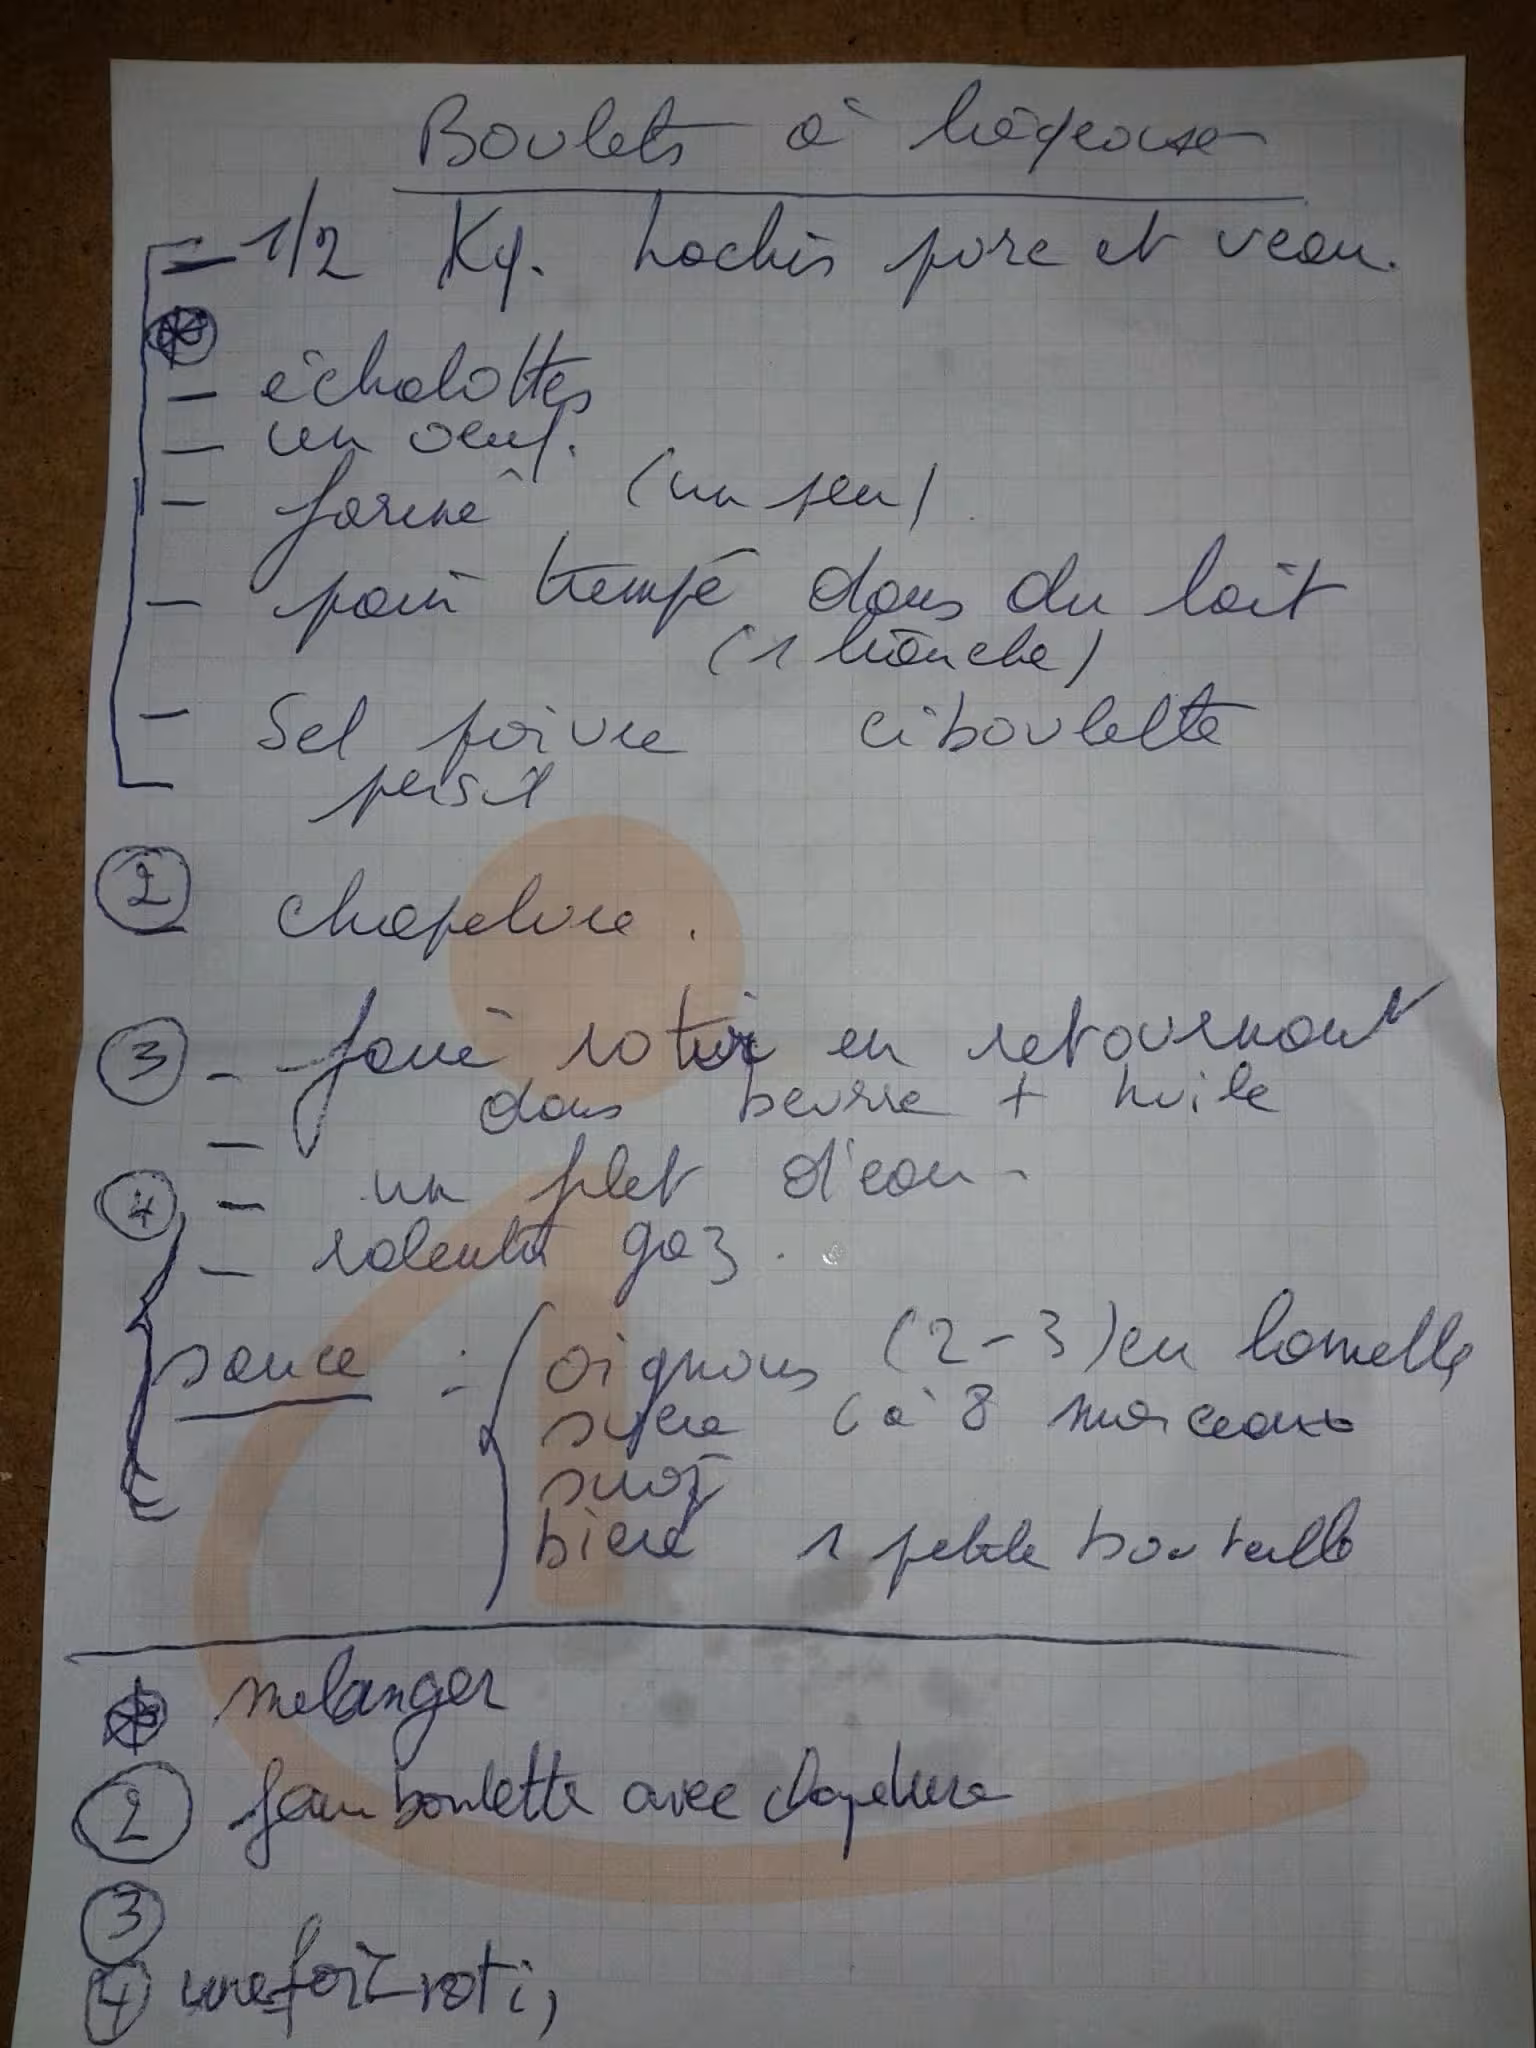 Boulets à liégeoise
- 1/2 Kg. hachis porc et veau.
- échalottes
- un oeuf.
- farine (un peu)
- pain trempé dans du lait
(1 tranche)
- Sel poivre ciboulette
persil
2 - chapelure.
3 - faire rotir en retournant
dans beurre + huile
4 - un filet d'eau -
- ralentir gaz.
sauce : oignons (2-3) en lamelle
(à 8 morceaux
bière 1 petite bouteille
melanger
2 faire boulette avec chapelure
3
4 une fois roti,